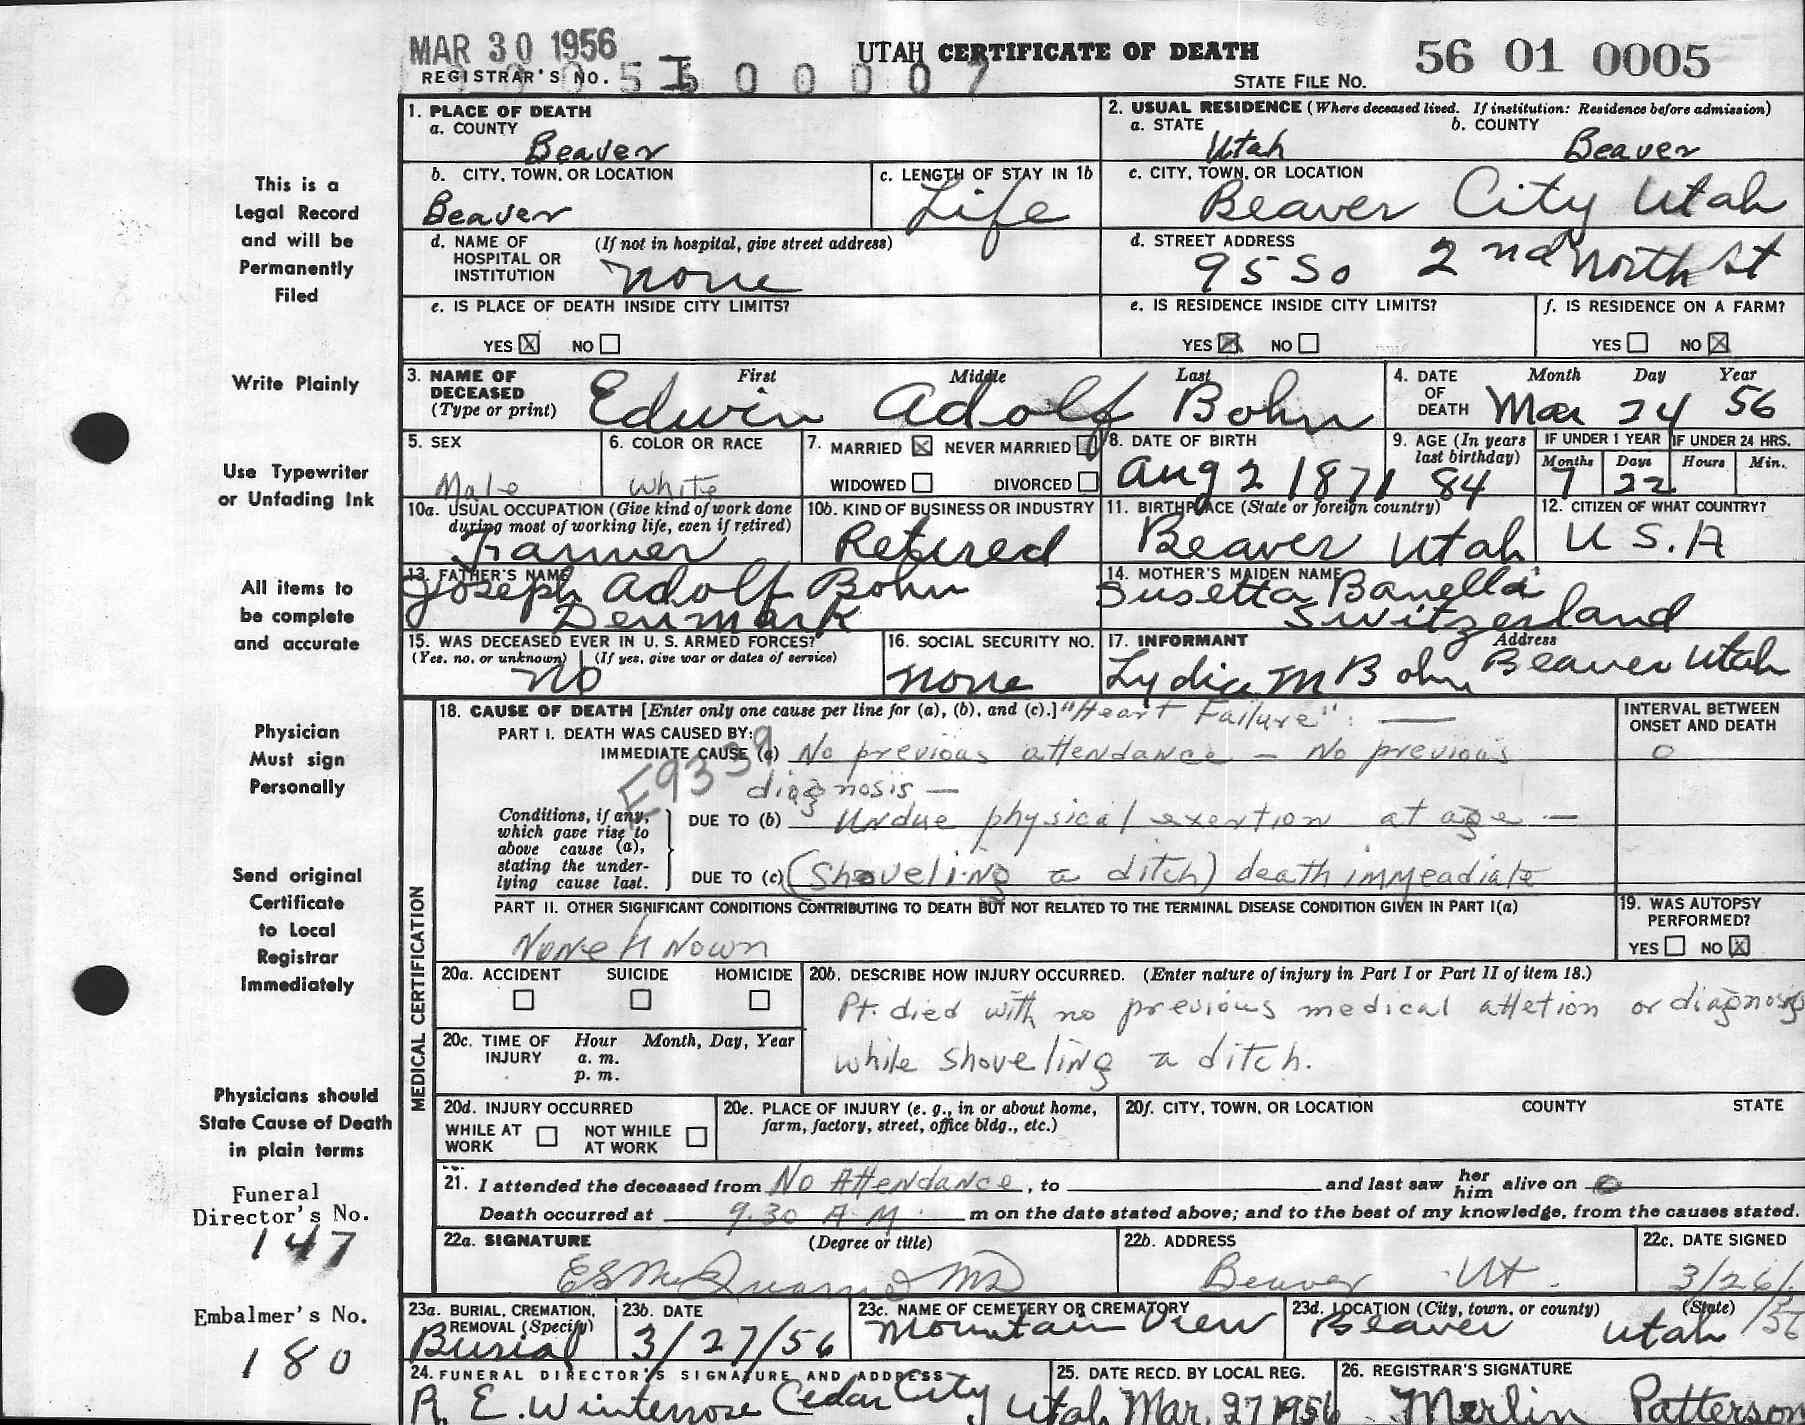 MAR 30 1956
UTAH CERTIFICATE OF DEATH
56 01 0005
REGISTRAR'S NO.
STATE FILE NO.
This is a
Legal Record
and will be
Permanently
Filed
Write Plainly
Use Typewriter
or Unfading Ink
All items to
be complete
and accurate
Physician
Must sign
Personally
Send original
Certificate
to Local
Registrar
Immediately
Physicians should
State Cause of Death
in plain terms
Funeral
Director's No.
147
Embalmer's No.
180
1. PLACE OF DEATH
a. COUNTY
Beaver
2. USUAL RESIDENCE (Where deceased lived. If institution: Residence before admission)
a. STATE
Utah
b. COUNTY
Beaver
b. CITY, TOWN, OR LOCATION
Beaver
c. LENGTH OF STAY IN 1b
Life
c. CITY, TOWN, OR LOCATION
Beaver City Utah
d. NAME OF HOSPITAL OR INSTITUTION (If not in hospital, give street address)
none
d. STREET ADDRESS
95 So 2nd North St
e. IS PLACE OF DEATH INSIDE CITY LIMITS?
YES X NO
e. IS RESIDENCE INSIDE CITY LIMITS?
YES X NO
f. IS RESIDENCE ON A FARM?
YES NO X
3. NAME OF DECEASED (Type or print) First Middle Last
Edwin Adolf Bohn
4. DATE OF DEATH Month Day Year
Mar 24 56
5. SEX
Male
6. COLOR OR RACE
White
7. MARRIED X NEVER MARRIED
WIDOWED DIVORCED
8. DATE OF BIRTH
Aug 2 1871
9. AGE (In years last birthday)
84
IF UNDER 1 YEAR IF UNDER 24 HRS.
Months Days Hours Min.
7 22
10a. USUAL OCCUPATION (Give kind of work done during most of working life, even if retired)
Farmer
10b. KIND OF BUSINESS OR INDUSTRY
Retired
11. BIRTHPLACE (State or foreign country)
Beaver Utah
12. CITIZEN OF WHAT COUNTRY?
U S.A
13. FATHER'S NAME
Joseph Adolf Bohn
Denmark
14. MOTHER'S MAIDEN NAME
Susetta Banella
Switzerland
15. WAS DECEASED EVER IN U. S. ARMED FORCES?
(Yes, no, or unknown) (If yes, give war or dates of service)
no
16. SOCIAL SECURITY NO.
none
17. INFORMANT Address
Lydia M Bohn Beaver Utah
MEDICAL CERTIFICATION
18. CAUSE OF DEATH [Enter only one cause per line for (a), (b), and (c).] "Heart Failure":
INTERVAL BETWEEN ONSET AND DEATH
0
PART I. DEATH WAS CAUSED BY:
IMMEDIATE CAUSE (a) No previous attendance — No previous
diagnosis —
E9339
Conditions, if any, which gave rise to above cause (a), stating the underlying cause last.
DUE TO (b) Undue physical exertion at age —
DUE TO (c) (Shoveling a ditch) death immeadiate
PART II. OTHER SIGNIFICANT CONDITIONS CONTRIBUTING TO DEATH BUT NOT RELATED TO THE TERMINAL DISEASE CONDITION GIVEN IN PART I(a)
None Known
19. WAS AUTOPSY PERFORMED?
YES NO X
20a. ACCIDENT SUICIDE HOMICIDE
20b. DESCRIBE HOW INJURY OCCURRED. (Enter nature of injury in Part I or Part II of item 18.)
Pt. died with no previous medical attetion or diagnosis
while shoveling a ditch.
20c. TIME OF INJURY Hour a. m. p. m. Month, Day, Year
20d. INJURY OCCURRED
WHILE AT WORK NOT WHILE AT WORK
20e. PLACE OF INJURY (e. g., in or about home, farm, factory, street, office bldg., etc.)
20f. CITY, TOWN, OR LOCATION COUNTY STATE
21. I attended the deceased from No Attendance, to and last saw her him alive on 0
Death occurred at 9.30 A M. m on the date stated above; and to the best of my knowledge, from the causes stated.
22a. SIGNATURE (Degree or title)
MD
22b. ADDRESS
Beaver Ut.
22c. DATE SIGNED
3/26/56
23a. BURIAL, CREMATION, REMOVAL (Specify)
Burial
23b. DATE
3/27/56
23c. NAME OF CEMETERY OR CREMATORY
Mountain View
23d. LOCATION (City, town, or county) (State)
Beaver Utah
24. FUNERAL DIRECTOR'S SIGNATURE AND ADDRESS
R. E. Winterrose Cedar City, Utah
25. DATE RECD. BY LOCAL REG.
Mar. 27 1956
26. REGISTRAR'S SIGNATURE
Merlin Patterson